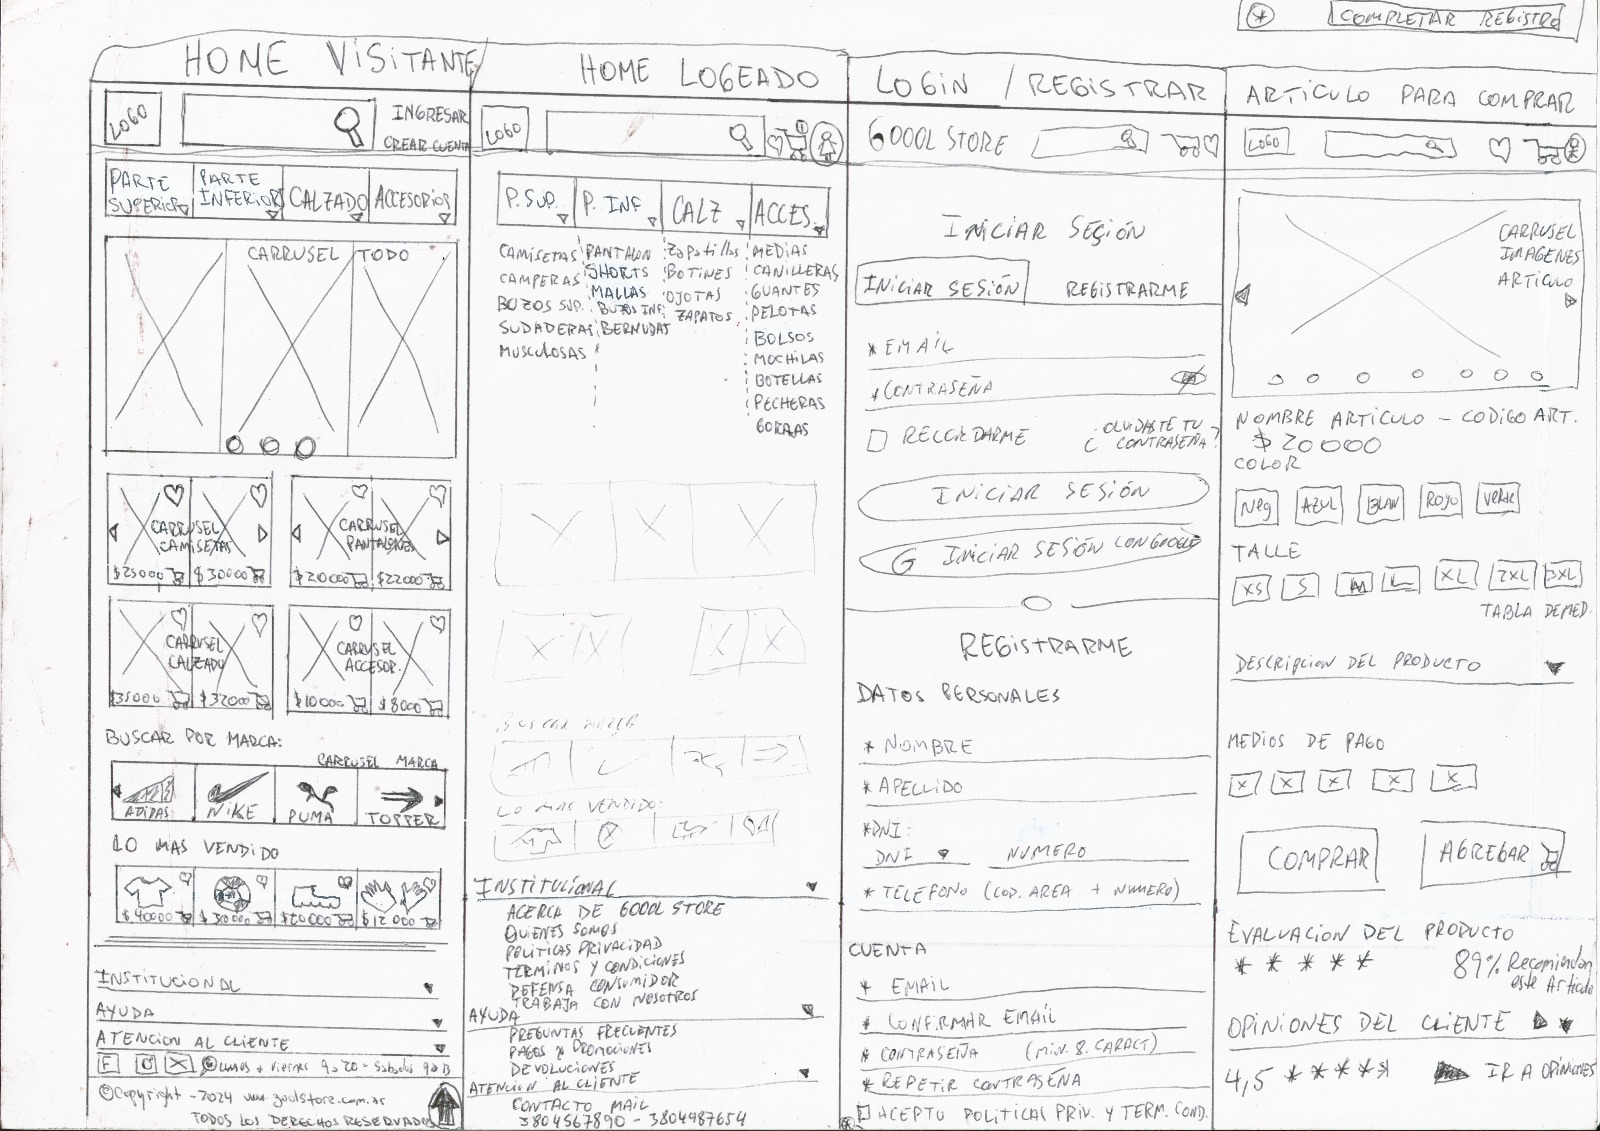 * COMPLETAR REGISTRO
HOME VISITANTE
LOGO
INGRESAR
CREAR CUENTA
PARTE SUPERIOR
PARTE INFERIOR
CALZADO
ACCESORIOS
CARRUSEL TODO
CARRUSEL CAMISETAS
$25000 $30000
CARRUSEL PANTALONES
$20000 $22000
CARRUSEL CALZADO
$35000 $32000
CARRUSEL ACCESOR.
$10000 $8000
BUSCAR POR MARCA:
CARRUSEL MARCA
ADIDAS NIKE PUMA TOPPER
LO MAS VENDIDO
$40000 $30000 $20000 $12000
INSTITUCIONAL
AYUDA
ATENCION AL CLIENTE
F X LUNES a Viernes 9 a 20 - Sabados 9 a 13
©Copyright - 2024 www.goolstore.com.ar
TODOS LOS DERECHOS RESERVADOS
HOME LOGEADO
LOGO
P. SUP. P. INF CALZ ACCES.
CAMISETAS
CAMPERAS
BUZOS SUP.
SUDADERAS
MUSCULOSAS
PANTALON
SHORTS
MALLAS
BUZOS INF.
BERNUDAS
Zapatillas
BOTINES
OJOTAS
ZAPATOS
MEDIAS
CANILLERAS
GUANTES
PELOTAS
BOLSOS
MOCHILAS
BOTELLAS
PECHERAS
GORRAS
BUSCAR MARCA
LO MAS VENDIDO:
INSTITUCIONAL
ACERCA DE GOOOL STORE
QUIENES SOMOS
POLITICAS PRIVACIDAD
TERMINOS Y CONDICIONES
DEFENSA CONSUMIDOR
TRABAJA CON NOSOTROS
AYUDA
PREGUNTAS FRECUENTES
PAGOS y PROMOCIONES
DEVOLUCIONES
ATENCION AL CLIENTE
CONTACTO MAIL
3804567890 - 3804987654
LOGIN / REGISTRAR
GOOOL STORE
INICIAR SESIÓN
INICIAR SESIÓN REGISTRARME
* EMAIL
* CONTRASEÑA
RECORDARME
¿OLVIDASTE TU CONTRASEÑA?
INICIAR SESIÓN
G INICIAR SESIÓN CON GOOGLE
REGISTRARME
DATOS PERSONALES
* NOMBRE
* APELLIDO
*DNI:
DNI NUMERO
* TELEFONO (COD. AREA + NUMERO)
CUENTA
* EMAIL
* CONFIRMAR EMAIL
* CONTRASEÑA (MIN. 8. CARACT)
* REPETIR CONTRASEÑA
ACEPTO POLITICAS PRIV. Y TERM. COND.
ARTICULO PARA COMPRAR
LOGO
CARRUSEL
IMAGENES
ARTICULO
NOMBRE ARTICULO - CODIGO ART.
$20000
COLOR
Neg AZUL BLAN ROJO VERDE
TALLE
XS S M L XL 2XL 3XL
TABLA DE MED.
DESCRIPCION DEL PRODUCTO
MEDIOS DE PAGO
COMPRAR
AGREGAR
EVALUACION DEL PRODUCTO
* * * * *
89% Recomiendan
este Articulo
OPINIONES DEL CLIENTE
4,5 * * * * *
IR A OPINIONES